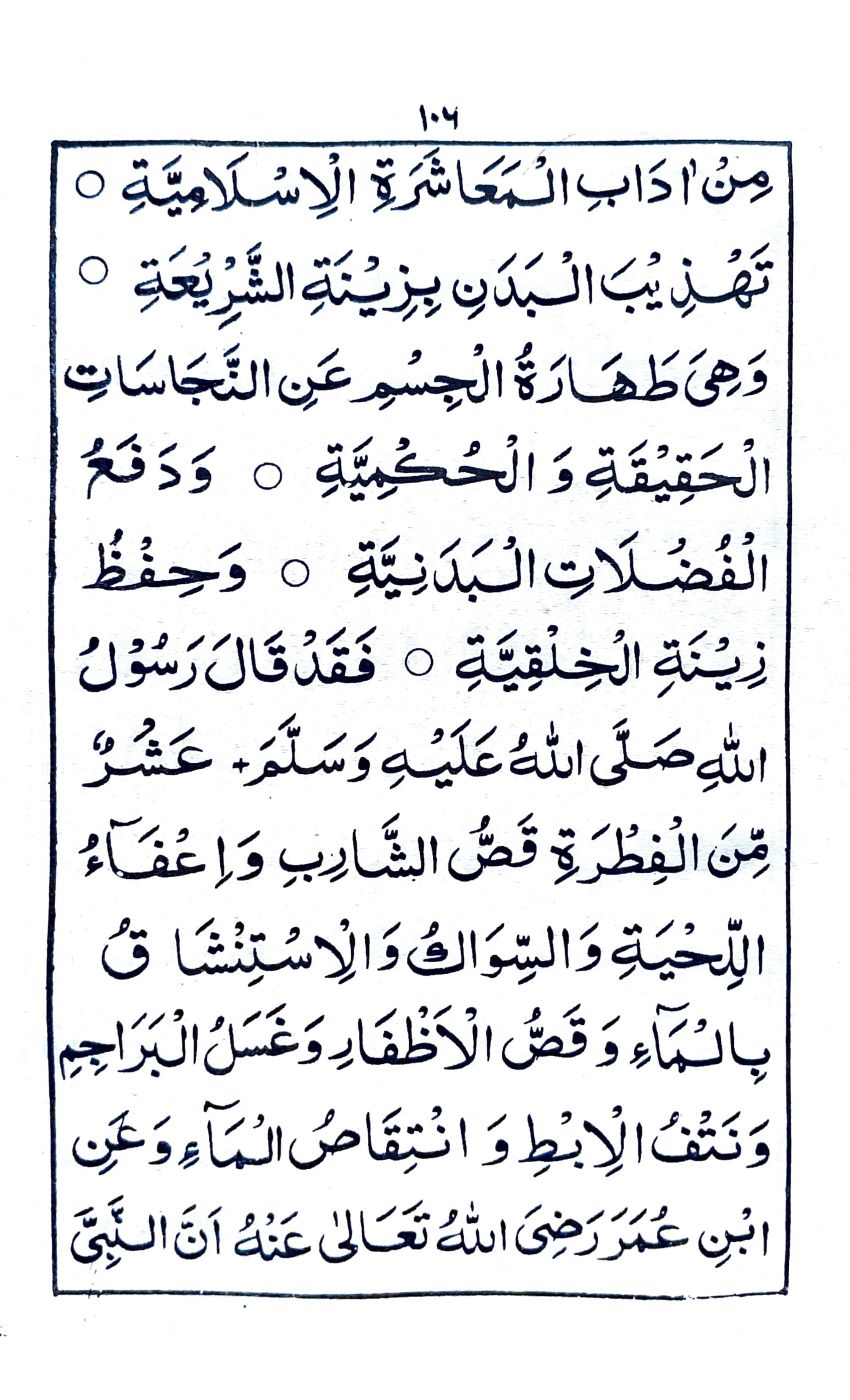 ١٠٦
مِنْ اٰدَابِ الْمَعَاشَرَةِ الْاِسْلَامِيَّةِ ○
تَهْذِيْبَ الْبَدَنِ بِزِيْنَةِ الشَّرِيْعَةِ ○
وَهِىَ طَهَارَةُ الْجِسْمِ عَنِ النَّجَاسَاتِ
الْحَقِيْقَةِ وَ الْحُكْمِيَّةِ ○ وَدَفَعُ
الْفُضُلَاتِ الْبَدَنِيَّةِ ○ وَحِفْظُ
زِيْنَةِ الْخِلْقِيَّةِ ○ فَقَدْ قَالَ رَسُوْلُ
اللهِ صَلَّى اللهُ عَلَيْهِ وَسَلَّمَ + عَشْرٌ
مِّنَ الْفِطْرَةِ قَصُّ الشَّارِبِ وَاِعْفَآءُ
اللِّحْيَةِ وَالسِّوَاكُ وَالْاِسْتِنْشَاقُ
بِالْمَآءِ وَقَصُّ الْاَظْفَارِ وَغَسَلُ الْبَرَاجِمِ
وَنَتْفُ الْاِبْطِ وَ انْتِقَاصُ الْمَآءِ وَعَنِ
ابْنِ عُمَرَ رَضِىَ اللهُ تَعَالٰى عَنْهُ اَنَّ النَّبِىَّ